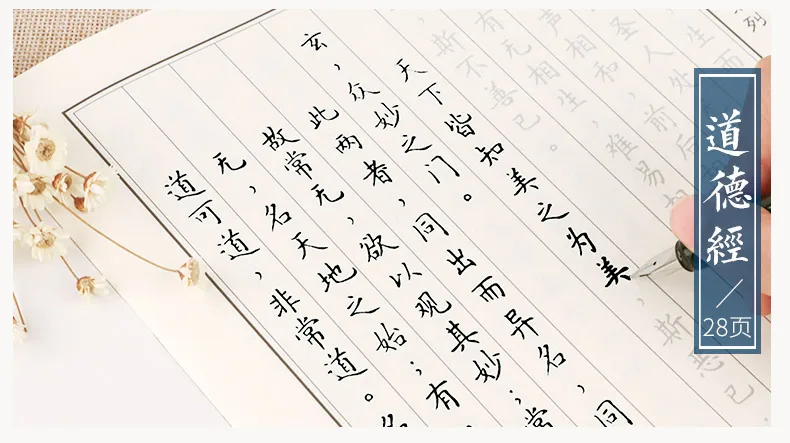 道可道，非常道。名
无，名天地之始；有
故常无，欲以观其妙；常
此两者，同出而异名，同
玄，众妙之门。
天下皆知美之为美
，斯恶已
斯不善已。
有无相生，难易
声相和，前后相
圣人处
生而
列
道德經
28页